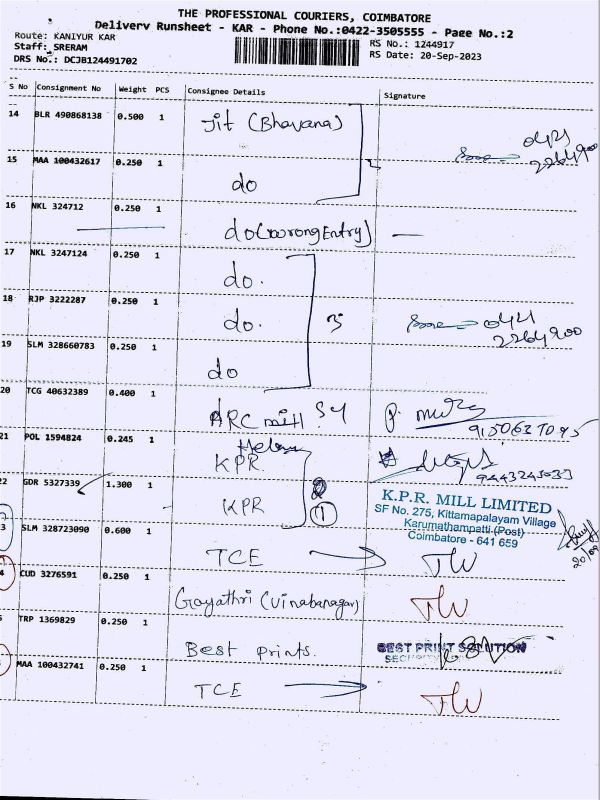 THE PROFESSIONAL COURIERS, COIMBATORE
Delivery Runsheet - KAR - Phone No.:0422-3505555 - Page No.:2
Route: KANIYUR KAR
RS No.: 1244917
Staff: SRERAM
RS Date: 20-Sep-2023
DRS No.: DCJB124491702
S No Consignment No Weight PCS Consignee Details Signature
14 BLR 490868138 0.500 1 Jit (Bhavana)
15 MAA 100432617 0.250 1 do
16 NKL 324712 0.250 1 do (wrong Entry) —
17 NKL 3247124 0.250 1 do.
18 RJP 3222287 0.250 1 do. 3
19 SLM 328660783 0.250 1 do
20 TCG 40632389 0.400 1 ARC mill
21 POL 1594824 0.245 1 KPR
22 GDR 5327339 1.300 1 KPR 1
K.P.R. MILL LIMITED
SF No. 275, Kittampalayam Village
Karumathampatti (Post)
Coimbatore - 641 659
3 SLM 328723090 0.600 1 TCE
4 CUD 3276591 0.250 1 Gayathri (Vinabanagar)
TRP 1369829 0.250 1 Best prints.
BEST PRINT SOLUTION
MAA 100432741 0.250 1 TCE